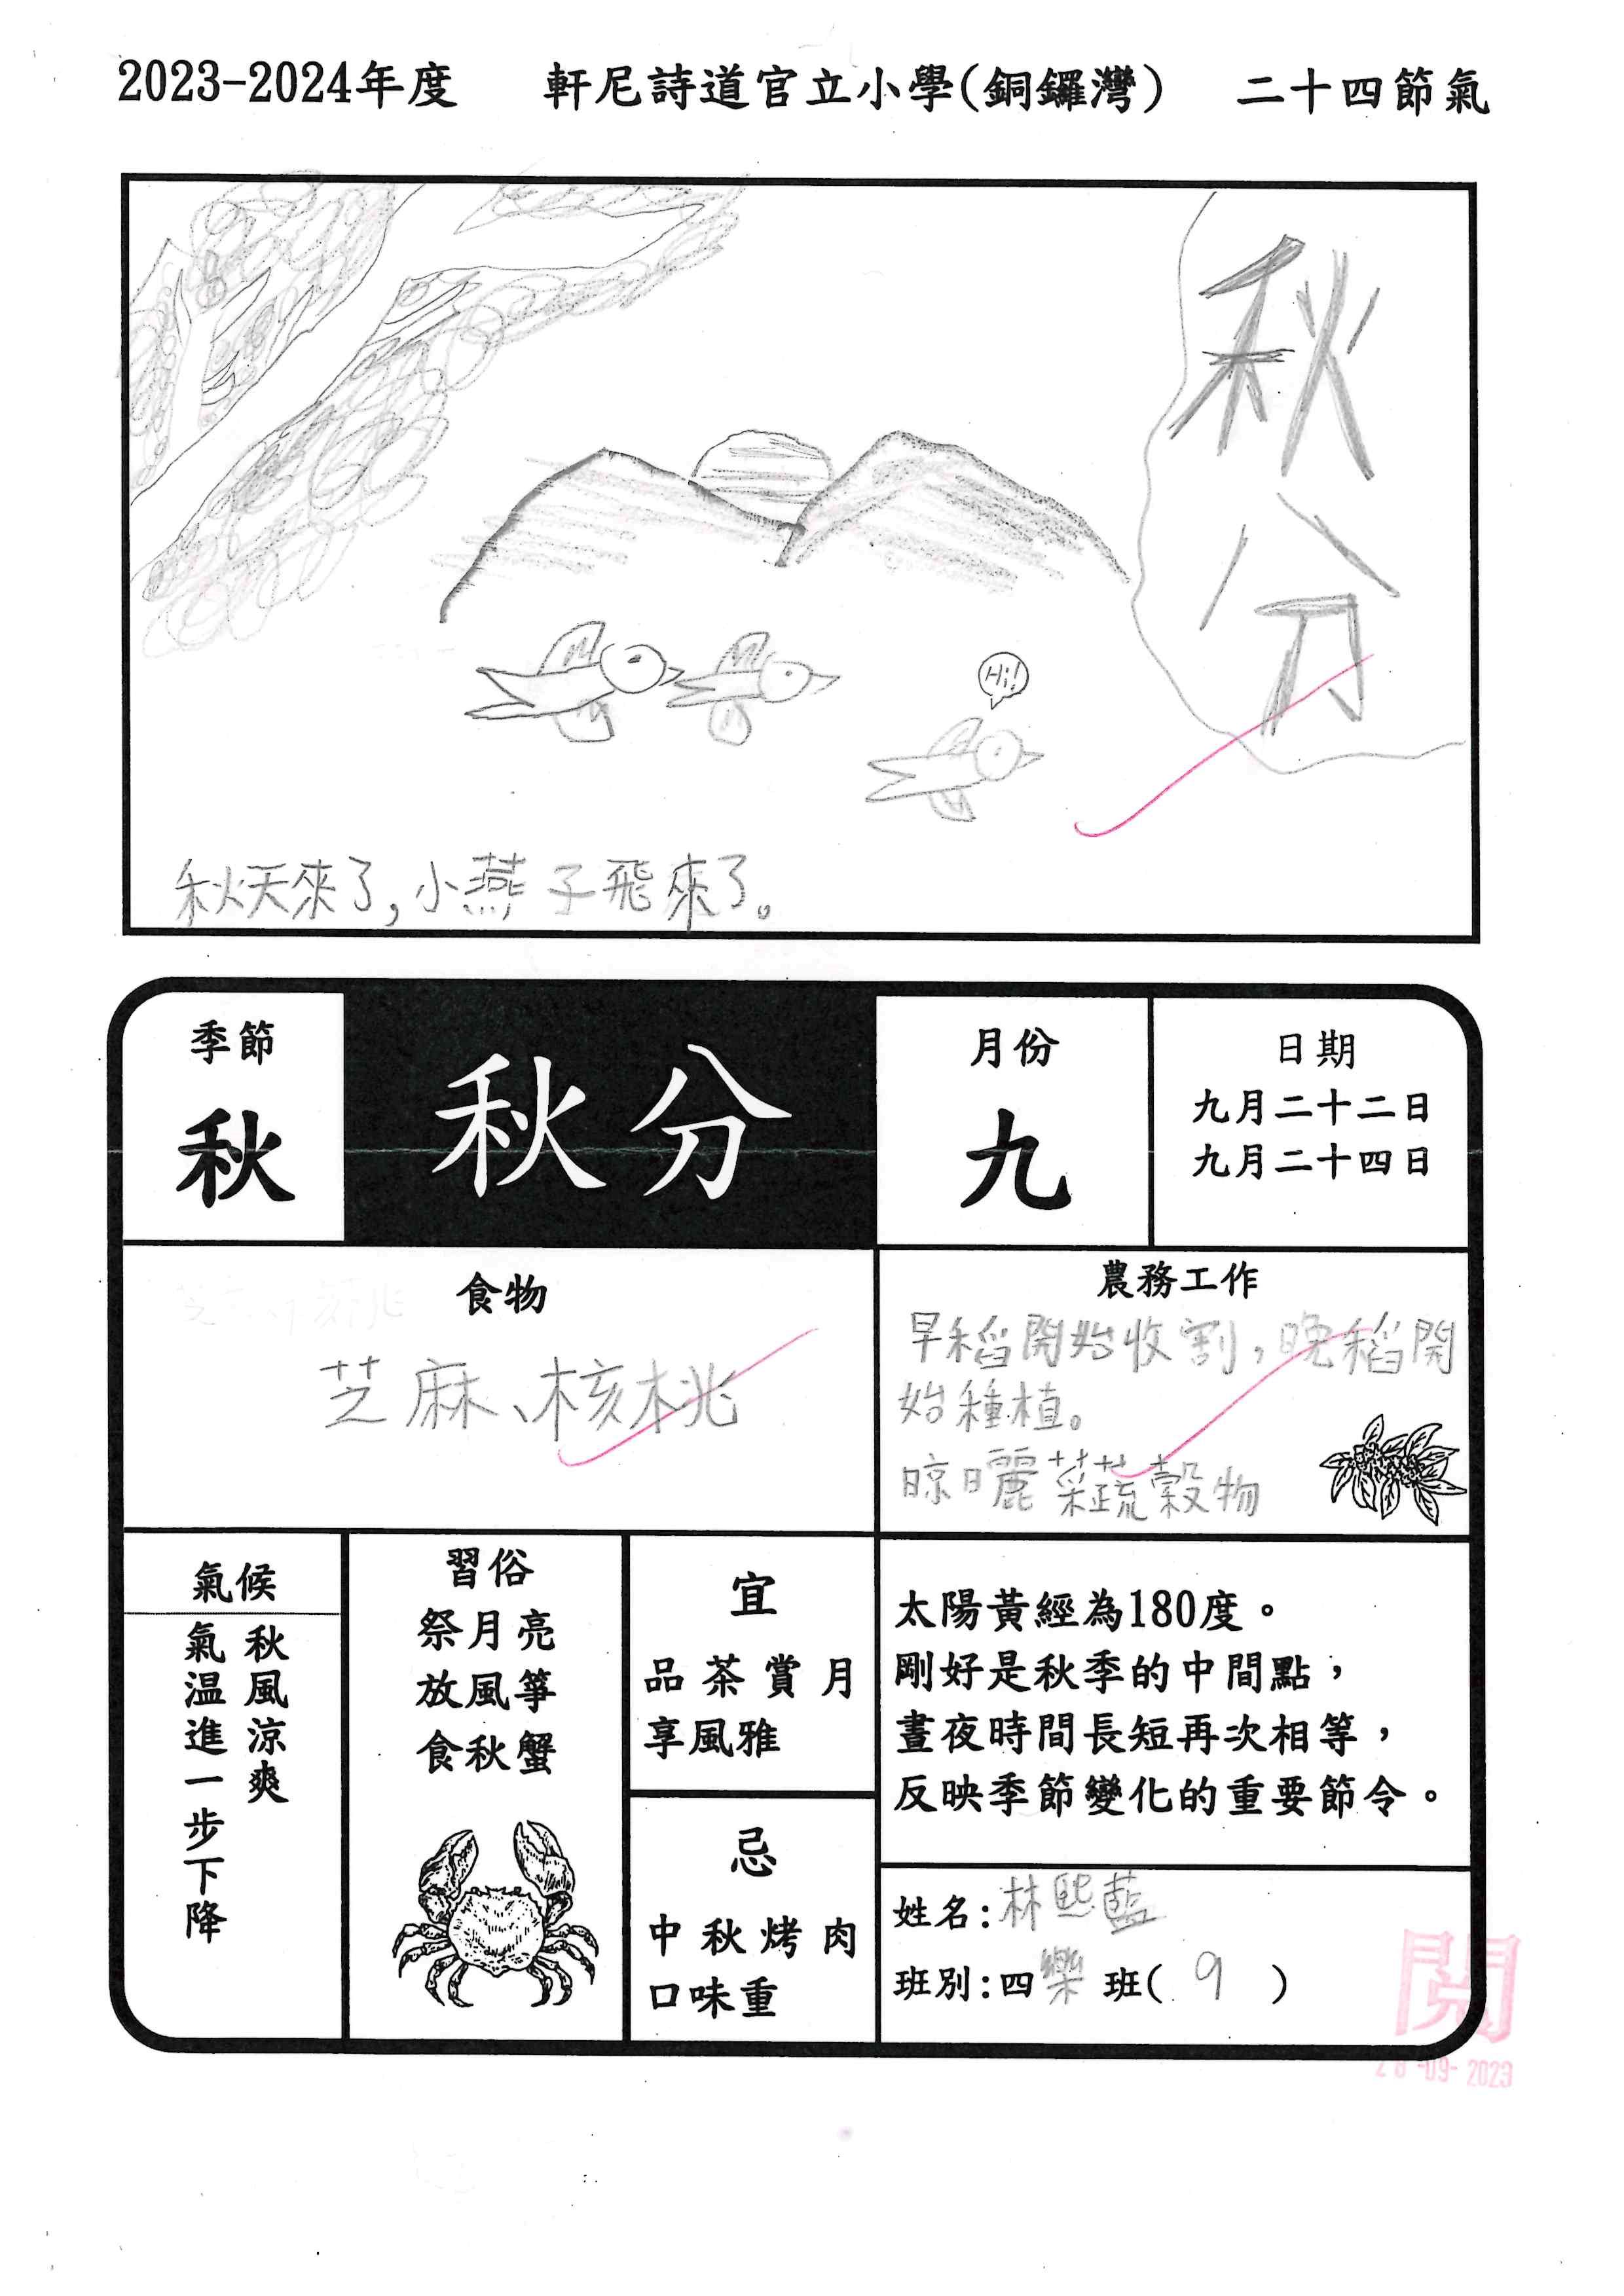 2023-2024年度 軒尼詩道官立小學(銅鑼灣) 二十四節氣
秋分
Hi!
秋天來了,小燕子飛來了。
季節
秋
秋分
月份
九
日期
九月二十二日
九月二十四日
食物
芝麻、核桃
農務工作
早稻開始收割,晚稻開
始種植。
晾曬菜蔬穀物
氣候
秋風涼爽
氣温進一步下降
習俗
祭月亮
放風箏
食秋蟹
宜
品茶賞月
享風雅
忌
中秋烤肉
口味重
太陽黃經為180度。
剛好是秋季的中間點,
晝夜時間長短再次相等,
反映季節變化的重要節令。
姓名:林熙藍
班別:四樂班( 9 )
閱
28-09-2023